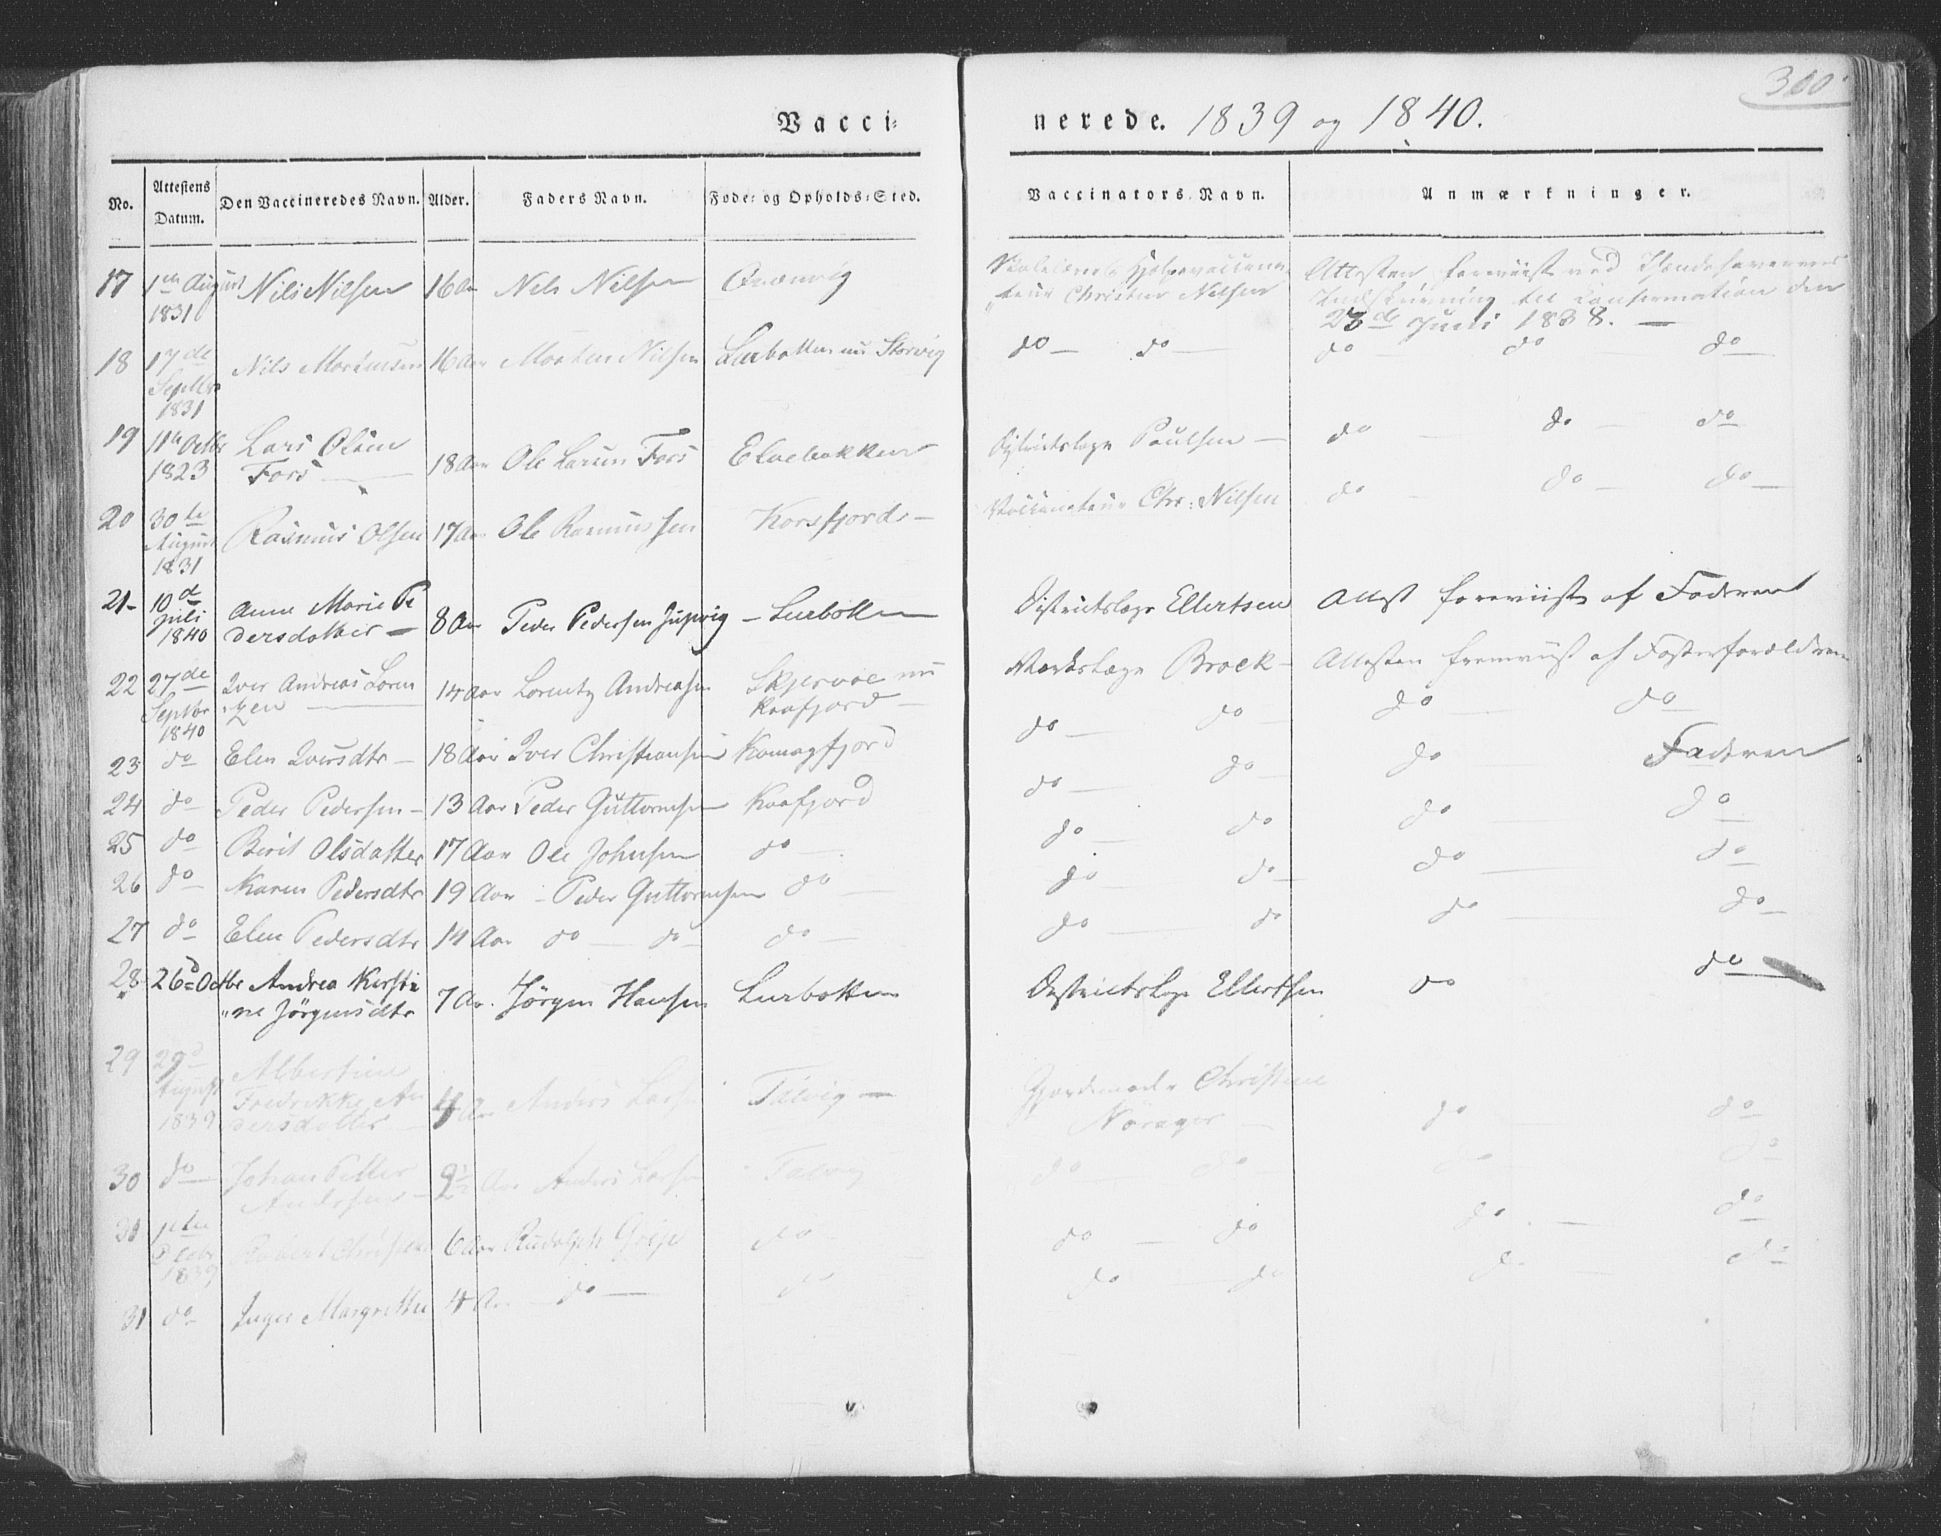 300
Vacci-
nerede. 1839 og 1840.
No. Attestens Datum. Den Vaccineredes Navn. Alder. Faders Navn. Føde- og Opholds-Sted. Vaccinators Navn. Anmærkninger.
17 1ste August 1831 Nils Nilsen 16 Aar Nels Nilsen Hjelpevaccina-
teur Christen Nilsen Attesten foreviist ved
Indskrivning til Confirmation den
23de Juni 1838. —
18 17de Septbr 1831 Nils Mortensen 16 Aar Morten Nilsen Lerbotten nu Storvig do — do — do do do —
19 11te Octbr 1823 Lars Olsen
Fors — 18 Aar Ole Larsen Fors Elvebakken Districtslæge Paulsen — do — do — do —
20 30te August 1831 Rasmus Olsen 17 Aar Ole Rasmussen Korsfjord — Vaccinateur Chr: Nilsen do — do — do —
21 10de Juli 1840 Anne Marie Pe
dersdatter — 8 Aar Peder Pedersen — Lerbotten Districtslæge Ellertsen Attest foreviist af Faderen
22 27de Septbr 1840 Iver Andreas Loren
tzen — 14 Aar Lorentz Andreasen Skjervøe nu
Kaafjord — Værkslæge Brock — Attesten fremviist af Fosterforældrene
23 do Elen Iversdtr — 18 Aar Iver Christiansen Komagfjord do — do — do — do
24 do Peder Pedersen — 13 Aar Peder Guttormsen Kaafjord do — do — do — Faderen
25 do Berit Olsdatter 17 Aar Ole Johnsen do — do — do do — do
26 do Karen Pedersdtr 19 Aar — Peder Guttormsen do — do do — do — do
27 do Elen Pedersdtr 14 Aar do — do — do — do — do do — do
28 26d Octbr Andrea Kirsti
ne Jörgensdtr 7 Aar Jörgen Hansen Lerbotten Districtslæge Ellertsen do do
29 29d August 1839 Albertine
Fredrikke An
dersdatter 4 Aar Anders Larsen Talvig — Gjordemoder Christine
Nörager — do do
30 do Johan Petter
Andersen — 9½ Aar Anders Larsen Talvig do do — do — do
30 1ste 1839 6 Aar Rudolph do — do — do do — do
31 do Inger Margrethe 4 Aar — do — do do — do do — do